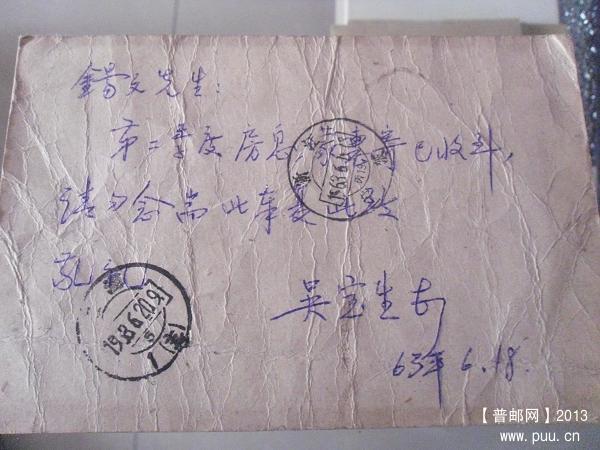 锡文先生：
第二季度房息蒙惠寄已收到，
请勿念耑此奉复此致
敬礼
吴宝生
63年6.18.
1963.6.
1963.6.20.19
【普邮网】2013
www.puu.cn